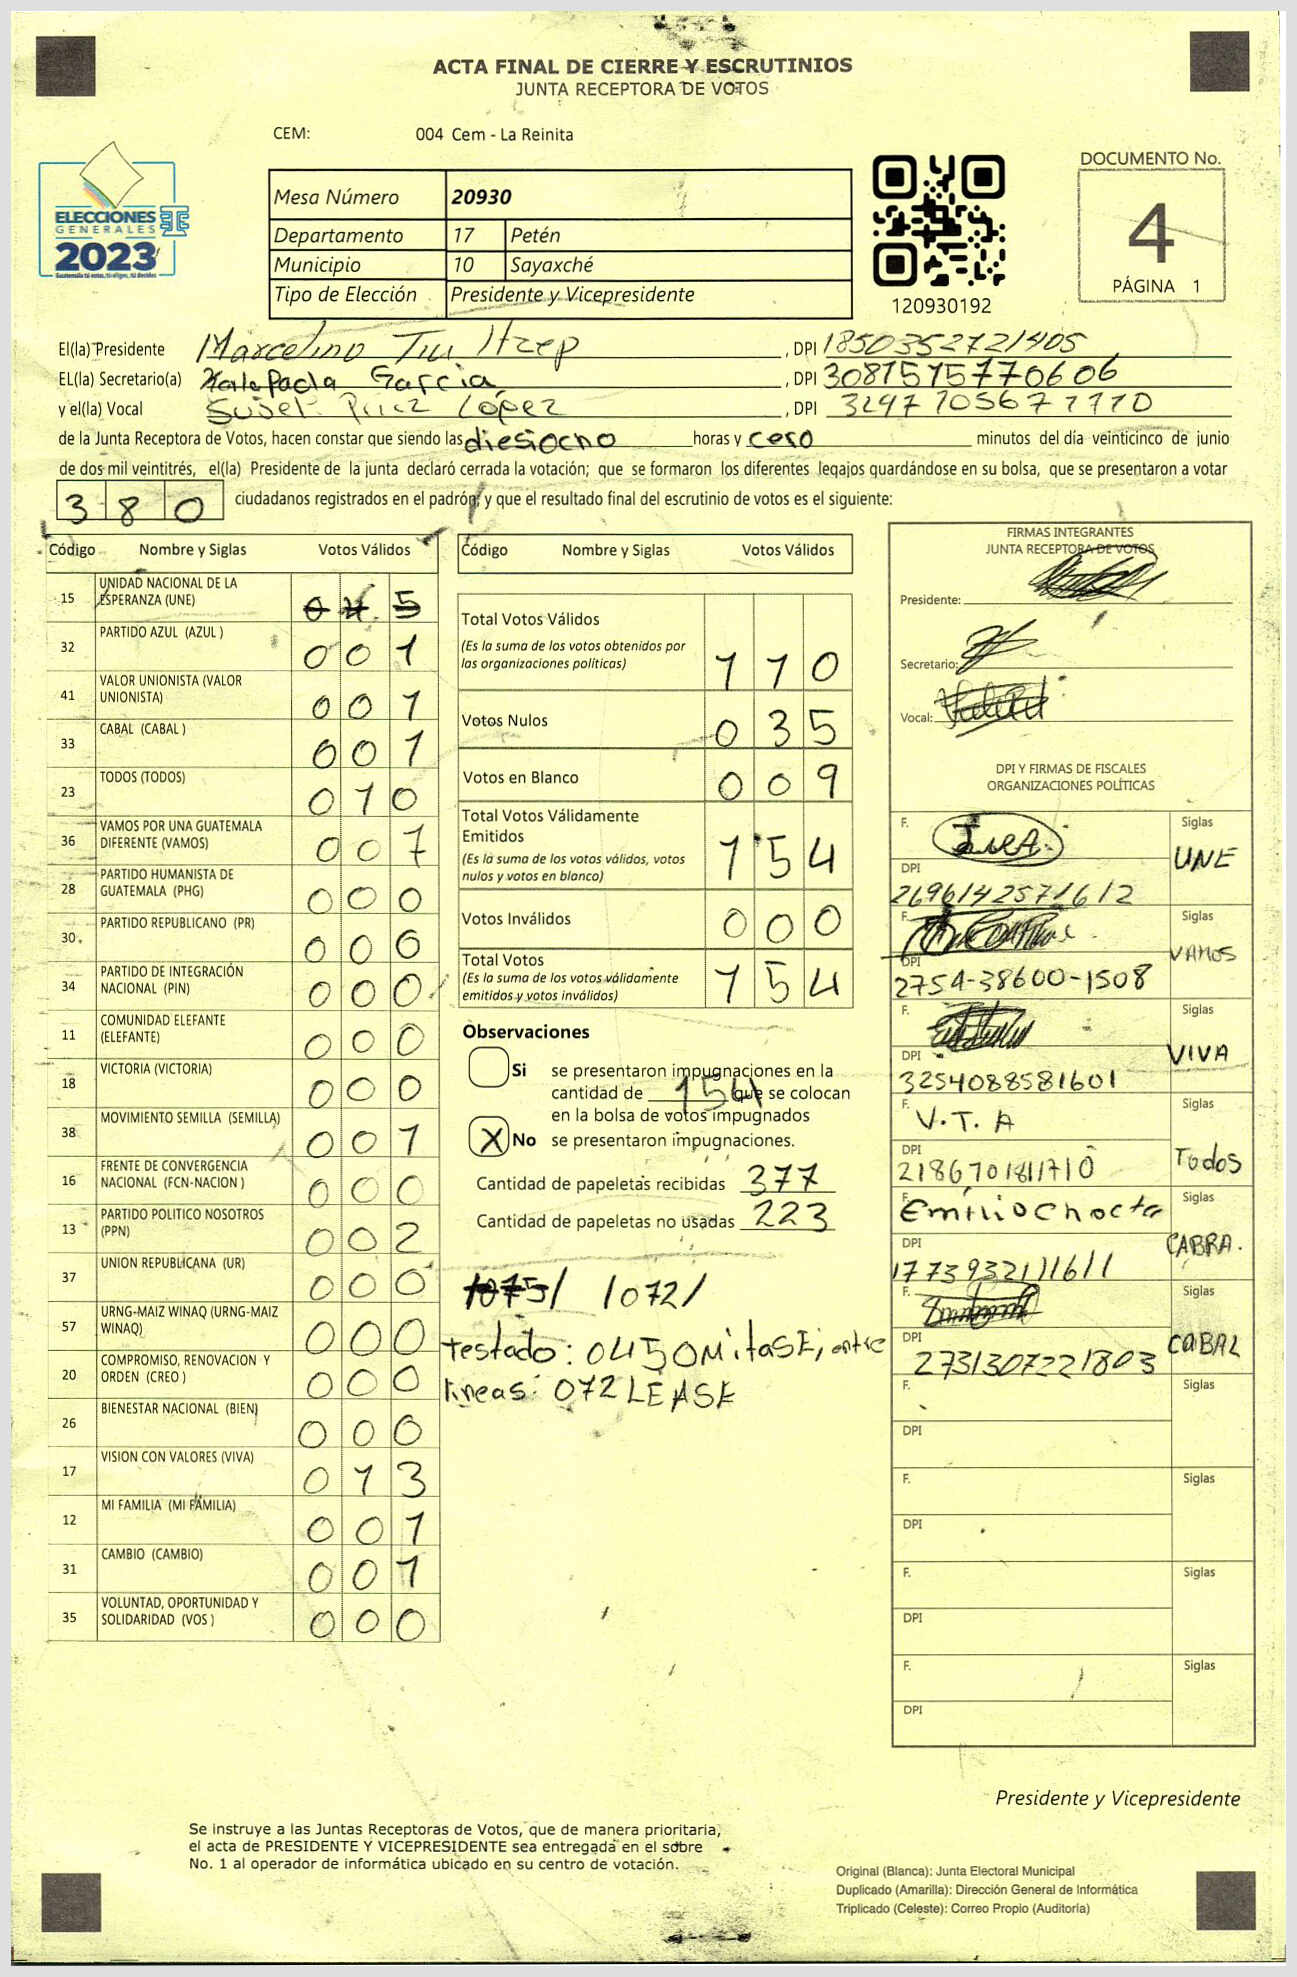 ACTA FINAL DE CIERRE Y ESCRUTINIOS
JUNTA RECEPTORA DE VOTOS
CEM: 004 Cem - La Reinita
ELECCIONES
GENERALES
2023
Guatemala tú votas, tú eliges, tú decides
Mesa Número 20930
Departamento 17 Petén
Municipio 10 Sayaxché
Tipo de Elección Presidente y Vicepresidente
120930192
DOCUMENTO No.
4
PÁGINA 1
El(la) Presidente Marcelino Tiu Itzep, DPI 1850352721405
EL(la) Secretario(a) Paola García, DPI 3081515770606
y el(la) Vocal López, DPI
de la Junta Receptora de Votos, hacen constar que siendo las diesiocho horas y cero minutos del día veinticinco de junio
de dos mil veintitrés, el(la) Presidente de la junta declaró cerrada la votación; que se formaron los diferentes legajos guardándose en su bolsa, que se presentaron a votar
380 ciudadanos registrados en el padrón, y que el resultado final del escrutinio de votos es el siguiente:
Código Nombre y Siglas Votos Válidos
15 UNIDAD NACIONAL DE LA ESPERANZA (UNE) 0 4 5
32 PARTIDO AZUL (AZUL ) 0 0 1
41 VALOR UNIONISTA (VALOR UNIONISTA) 0 0 1
33 CABAL (CABAL ) 0 0 1
23 TODOS (TODOS) 0 1 0
36 VAMOS POR UNA GUATEMALA DIFERENTE (VAMOS) 0 0 7
28 PARTIDO HUMANISTA DE GUATEMALA (PHG) 0 0 0
30 PARTIDO REPUBLICANO (PR) 0 0 0
34 PARTIDO DE INTEGRACIÓN NACIONAL (PIN) 0 0 0
11 COMUNIDAD ELEFANTE (ELEFANTE) 0 0 0
18 VICTORIA (VICTORIA) 0 0 0
38 MOVIMIENTO SEMILLA (SEMILLA) 0 0 1
16 FRENTE DE CONVERGENCIA NACIONAL (FCN-NACION ) 0 0 0
13 PARTIDO POLITICO NOSOTROS (PPN) 0 0 2
37 UNION REPUBLICANA (UR) 0 0 0
57 URNG-MAIZ WINAQ (URNG-MAIZ WINAQ) 0 0 0
20 COMPROMISO, RENOVACION Y ORDEN (CREO ) 0 0 0
26 BIENESTAR NACIONAL (BIEN) 0 0 0
17 VISION CON VALORES (VIVA) 0 1 3
12 MI FAMILIA (MI FAMILIA) 0 0 1
31 CAMBIO (CAMBIO) 0 0 1
35 VOLUNTAD, OPORTUNIDAD Y SOLIDARIDAD (VOS ) 0 0 0
Código Nombre y Siglas Votos Válidos
Total Votos Válidos 1 1 0
(Es la suma de los votos obtenidos por
las organizaciones políticas)
Votos Nulos 0 3 5
Votos en Blanco 0 0 9
Total Votos Válidamente
Emitidos 1 5 4
(Es la suma de los votos válidos, votos
nulos y votos en blanco)
Votos Inválidos 0 0 0
Total Votos 1 5 4
(Es la suma de los votos válidamente
emitidos y votos inválidos)
Observaciones
Si se presentaron impugnaciones en la
cantidad de 154 que se colocan
en la bolsa de votos impugnados
X No se presentaron impugnaciones.
Cantidad de papeletas recibidas 377
Cantidad de papeletas no usadas 223
/072/
testado: 045 OMitaSE, entre
lineas: 072 LEASE
FIRMAS INTEGRANTES
JUNTA RECEPTORA DE VOTOS
Presidente:
Secretario:
Vocal:
DPI Y FIRMAS DE FISCALES
ORGANIZACIONES POLÍTICAS
F. Siglas UNE
DPI 2696142571612
F. Siglas VAMOS
DPI 2754-38600-1508
F. Siglas VIVA
DPI 3254088581601
F. V.T.A Siglas Todos
DPI 2186701811710
F. Emilio Choc Siglas CABRA.
DPI 1773932111611
F. Siglas CABAL
DPI 2731307221803
F. Siglas
DPI
F. Siglas
DPI
F. Siglas
DPI
F. Siglas
DPI
Presidente y Vicepresidente
Se instruye a las Juntas Receptoras de Votos, que de manera prioritaria,
el acta de PRESIDENTE Y VICEPRESIDENTE sea entregada en el sobre
No. 1 al operador de informática ubicado en su centro de votación.
Original (Blanca): Junta Electoral Municipal
Duplicado (Amarilla): Dirección General de Informática
Triplicado (Celeste): Correo Propio (Auditoría)